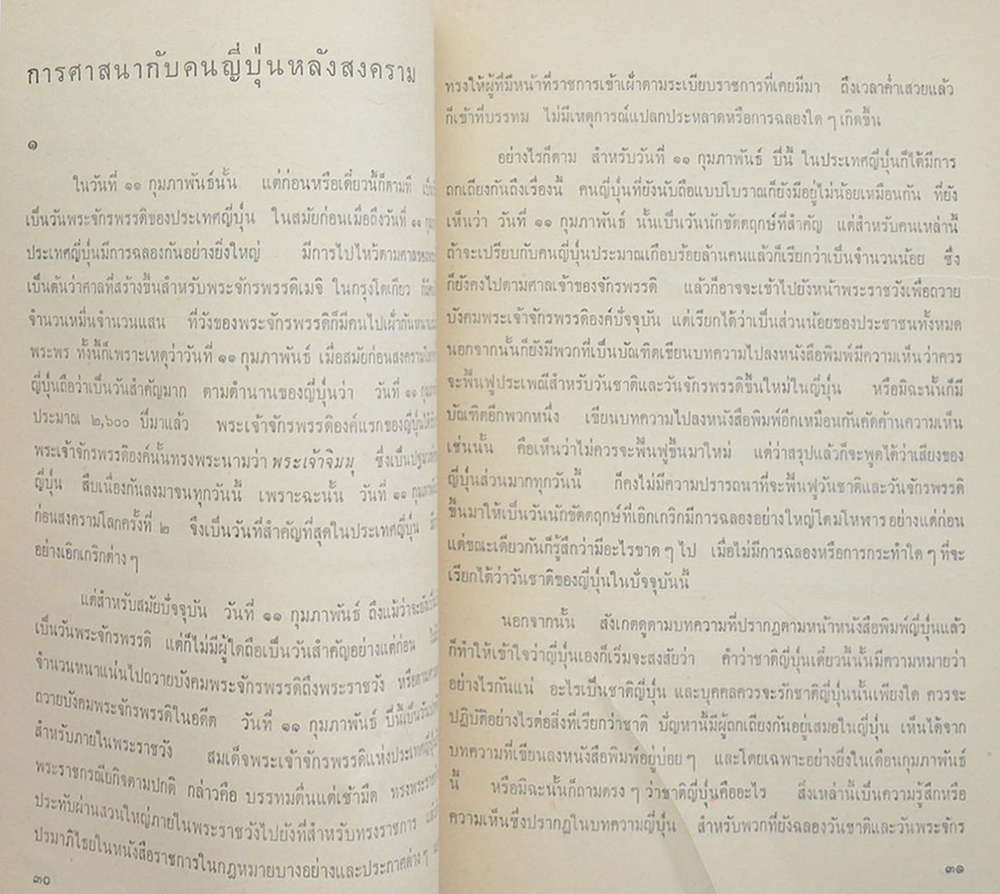 การศาสนากับคนญี่ปุ่นหลังสงคราม
๑
ในวันที่ ๑๑ กุมภาพันธ์นั้น แต่ก่อนหรือเดี๋ยวนี้ก็ตามที
เป็นวันพระจักรพรรดิของประเทศญี่ปุ่น ในสมัยก่อนเมื่อถึงวันที่ ๑๑
ประเทศญี่ปุ่นมีการฉลองกันอย่างยิ่งใหญ่ มีการไปไหว้ตามศาล
เป็นต้นว่าศาลที่สร้างขึ้นสำหรับพระจักรพรรดิเมจิ ในกรุงโตเกียว
จำนวนหมื่นจำนวนแสน ที่วังของพระจักรพรรดิก็มีคนไปเฝ้ากัน
พระพร ทั้งนี้ก็เพราะเหตุว่าวันที่ ๑๑ กุมภาพันธ์ เมื่อสมัยก่อนสงคราม
ญี่ปุ่นถือว่าเป็นวันสำคัญมาก ตามตำนานของญี่ปุ่นว่า วันที่ ๑๑
ประมาณ ๒,๖๐๐ ปีมาแล้ว พระเจ้าจักรพรรดิองค์แรกของญี่ปุ่น
พระเจ้าจักรพรรดิองค์นั้นทรงพระนามว่า พระเจ้าจิมมุ ซึ่งเป็น
ญี่ปุ่น สืบเนื่องกันลงมาจนทุกวันนี้ เพราะฉะนั้น วันที่ ๑๑
ก่อนสงครามโลกครั้งที่ ๒ จึงเป็นวันที่สำคัญที่สุดในประเทศญี่ปุ่น
อย่างเอิกเกริกต่าง ๆ
แต่สำหรับสมัยปัจจุบัน วันที่ ๑๑ กุมภาพันธ์ ถึงแม้ว่าจะ
เป็นวันพระจักรพรรดิ แต่ก็ไม่มีผู้ใดถือเป็นวันสำคัญอย่างแต่ก่อน
จำนวนหนาแน่นไปถวายบังคมพระจักรพรรดิถึงพระราชวัง
ถวายบังคมพระจักรพรรดิในอดีต วันที่ ๑๑ กุมภาพันธ์ ปีนี้เป็นวัน
สำหรับภายในพระราชวัง สมเด็จพระเจ้าจักรพรรดิแห่งประเทศญี่ปุ่น
พระราชกรณียกิจตามปกติ กล่าวคือ บรรทมตื่นแต่เช้ามืด
ประทับผ่านสวนใหญ่ภายในพระราชวังไปยังที่สำหรับทรงราชการ
ปรมาภิไธยในหนังสือราชการในกฎหมายบางอย่างและประกาศต่าง ๆ
๓๐
ทรงให้ผู้ที่มีหน้าที่ราชการเข้าเฝ้าตามระเบียบราชการที่เคยมีมา ถึงเวลาค่ำเสวยแล้ว
ก็เข้าที่บรรทม ไม่มีเหตุการณ์แปลกประหลาดหรือการฉลองใด ๆ เกิดขึ้น
อย่างไรก็ตาม สำหรับวันที่ ๑๑ กุมภาพันธ์ ปีนี้ ในประเทศญี่ปุ่นก็ได้มีการ
ถกเถียงกันถึงเรื่องนี้ คนญี่ปุ่นที่ยังนับถือแบบโบราณก็ยังมีอยู่ไม่น้อยเหมือนกัน ที่ยัง
เห็นว่า วันที่ ๑๑ กุมภาพันธ์ นั้นเป็นวันนักขัตฤกษ์ที่สำคัญ แต่สำหรับคนเหล่านี้
ถ้าจะเปรียบกับคนญี่ปุ่นประมาณเกือบร้อยล้านคนแล้วก็เรียกว่าเป็นจำนวนน้อย ซึ่ง
ก็ยังคงไปตามศาลเจ้าของจักรพรรดิ แล้วก็อาจจะเข้าไปยังหน้าพระราชวังเพื่อถวาย
บังคมพระเจ้าจักรพรรดิองค์ปัจจุบัน แต่เรียกได้ว่าเป็นส่วนน้อยของประชาชนทั้งหมด
นอกจากนั้นก็ยังมีพวกที่เป็นบัณฑิตเขียนบทความไปลงหนังสือพิมพ์มีความเห็นว่าควร
จะฟื้นฟูประเพณีสำหรับวันชาติและวันจักรพรรดิขึ้นใหม่ในญี่ปุ่น หรือมิฉะนั้นก็มี
บัณฑิตอีกพวกหนึ่ง เขียนบทความไปลงหนังสือพิมพ์อีกเหมือนกันคัดค้านความเห็น
เช่นนั้น คือเห็นว่าไม่ควรจะฟื้นฟูขึ้นมาใหม่ แต่ว่าสรุปแล้วก็จะพูดได้ว่าเสียงของ
ญี่ปุ่นส่วนมากทุกวันนี้ ก็คงไม่มีความปรารถนาที่จะฟื้นฟูวันชาติและวันจักรพรรดิ
ขึ้นมาให้เป็นวันนักขัตฤกษ์ที่เอิกเกริกมีการฉลองอย่างใหญ่โตมโหฬาร อย่างแต่ก่อน
แต่ขณะเดียวกันก็รู้สึกว่ามีอะไรขาด ๆ ไป เมื่อไม่มีการฉลองหรือการกระทำใด ๆ ที่จะ
เรียกได้ว่าวันชาติของญี่ปุ่นในปัจจุบันนี้
นอกจากนั้น สังเกตดูตามบทความที่ปรากฏตามหน้าหนังสือพิมพ์ญี่ปุ่นแล้ว
ก็ทำให้เข้าใจว่าญี่ปุ่นเองก็เริ่มจะสงสัยว่า คำว่าชาติญี่ปุ่นเดี๋ยวนี้นั้นมีความหมายว่า
อย่างไรกันแน่ อะไรเป็นชาติญี่ปุ่น และบุคคลควรจะรักชาติญี่ปุ่นนั้นเพียงใด ควรจะ
ปฏิบัติอย่างไรต่อสิ่งที่เรียกว่าชาติ ปัญหานี้มีผู้ถกเถียงกันอยู่เสมอในญี่ปุ่น เห็นได้จาก
บทความที่เขียนลงหนังสือพิมพ์อยู่บ่อย ๆ และโดยเฉพาะอย่างยิ่งในเดือนกุมภาพันธ์
นี้ หรือมิฉะนั้นก็ถามตรง ๆ ว่าชาติญี่ปุ่นคืออะไร สิ่งเหล่านี้เป็นความรู้สึกหรือ
ความเห็นซึ่งปรากฏในบทความญี่ปุ่น สำหรับพวกที่ยังฉลองวันชาติและวันพระจักร
๓๑